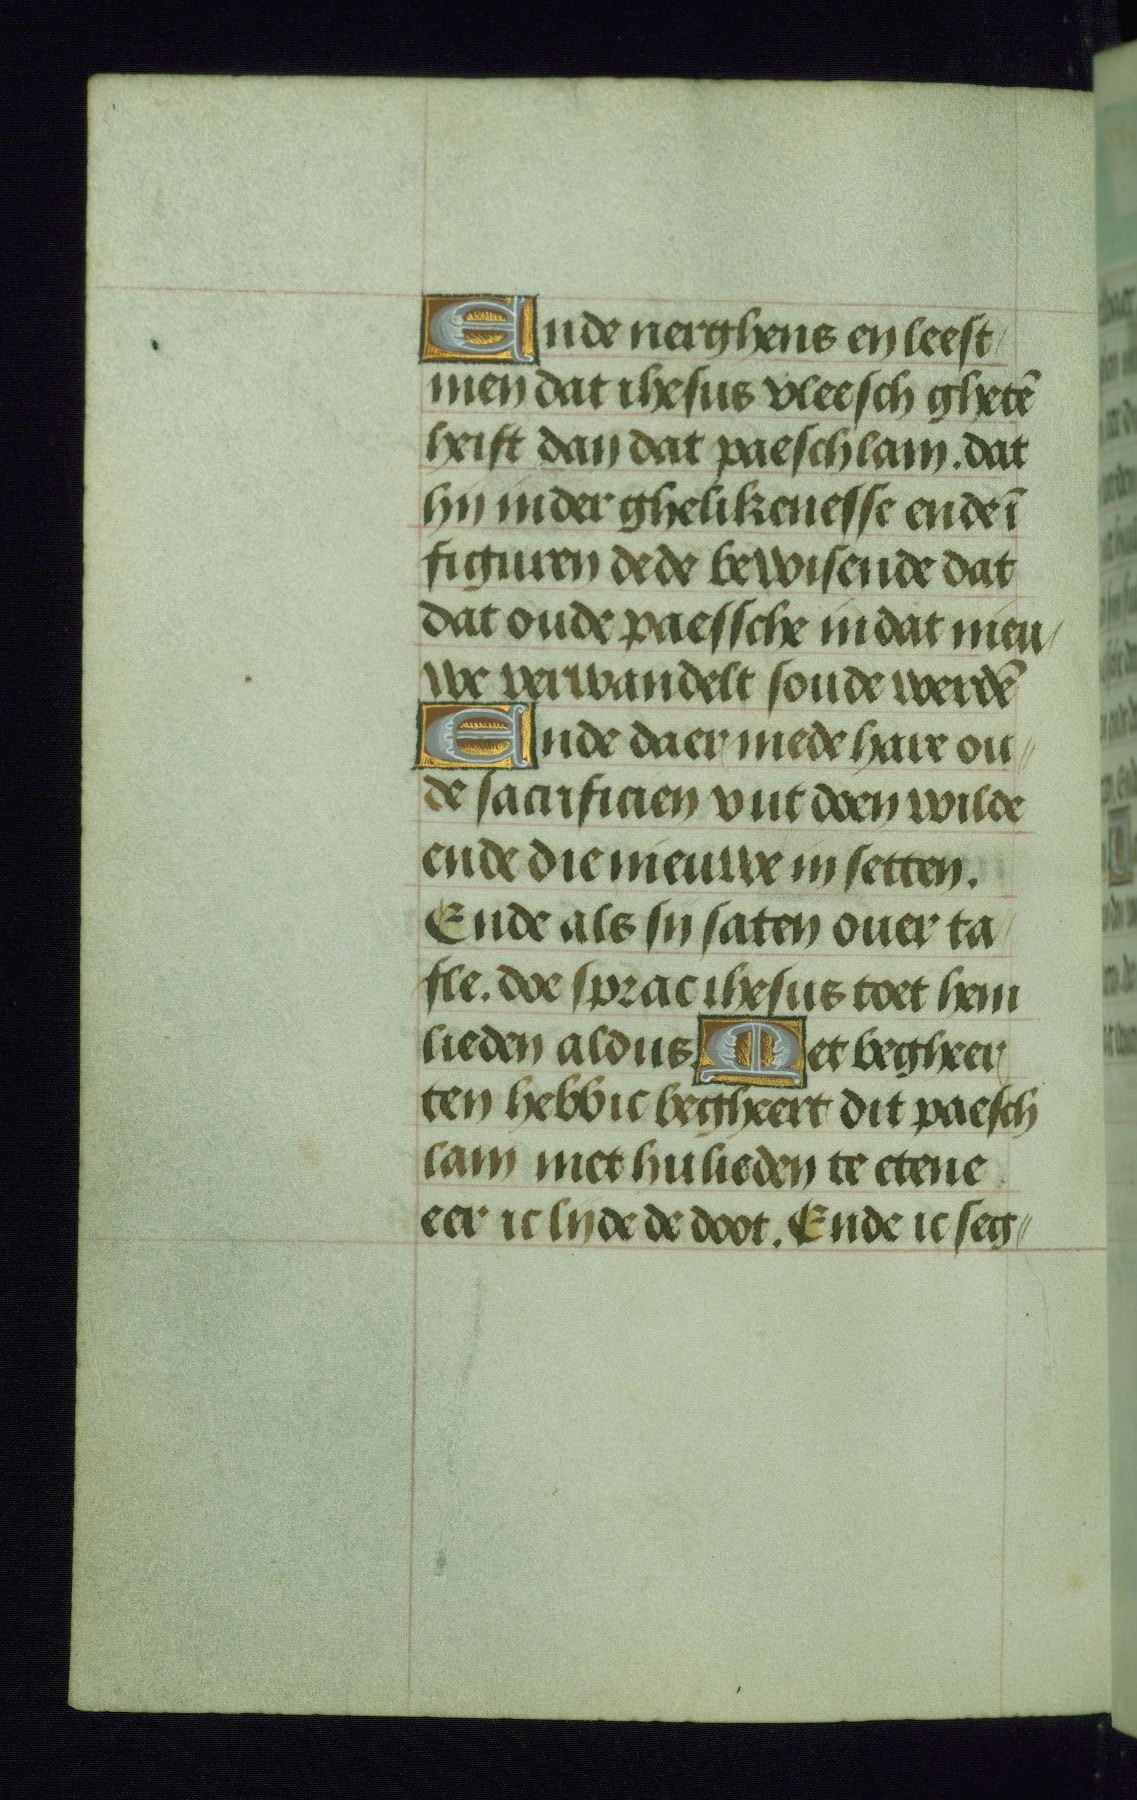 Ende nerghens en leest
men dat ihesus vleesch ghetē
heift dan dat paeschlam. dat
hij in der ghelikenesse ende ī
figuren dede bewisende dat
dat oude paessche in dat nieu
we verwandelt soude werdē
Ende daer mede hare ou
de sacrificien vut doen wilde
ende die nieuwe in setten.
Ende als sij saten ouer ta
fle. doe sprac ihesus toet hem
lieden aldus Met begheer
ten hebbic begheert dit paesch
lam met hulieden te etene
eer ic lijde de doot. Ende ic seg